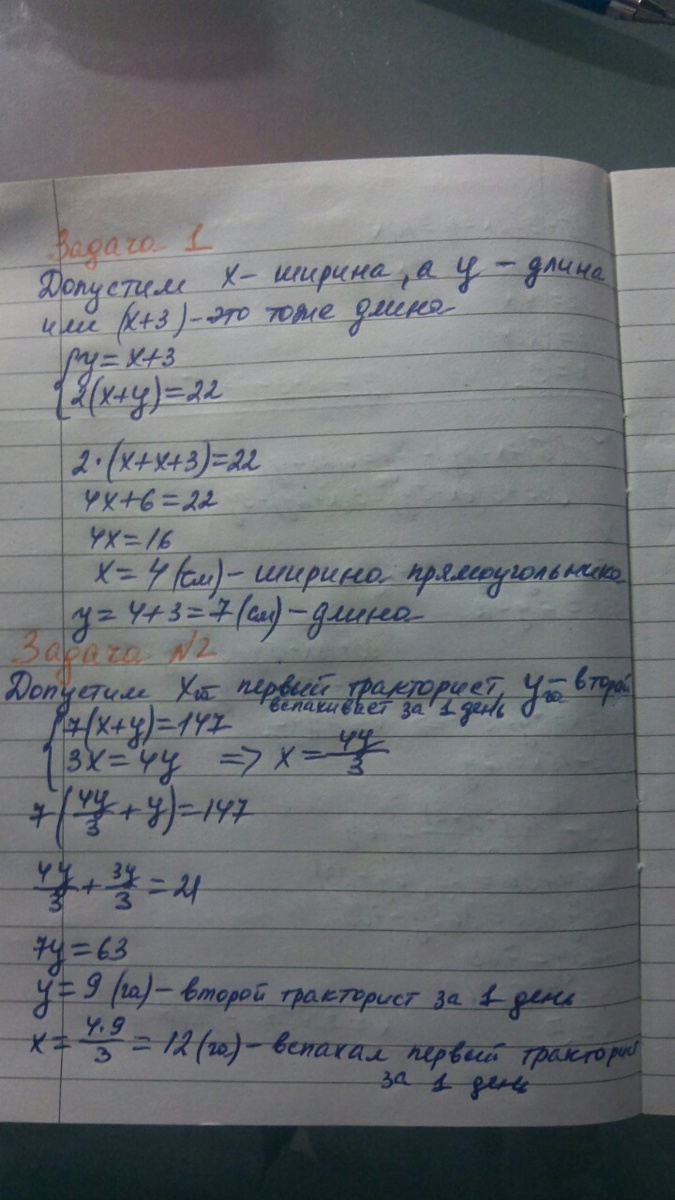 Задача 1
Допустим x - ширина, а y - длина
или (x+3) - это тоже длина
{ y = x+3
{ 2(x+y)=22
2·(x+x+3)=22
4x+6=22
4x=16
x=4 (см) - ширина прямоугольника
y=4+3=7 (см) - длина
Задача №2
Допустим x га - первый тракторист, y га - второй
вспахивает за 1 день
{ 7(x+y)=147
{ 3x=4y => x = 4y/3
7(4y/3 + y)=147
4y/3 + 3y/3 = 21
7y=63
y=9 (га) - второй тракторист за 1 день
x = 4·9/3 = 12 (га) - вспахал первый тракторист
за 1 день